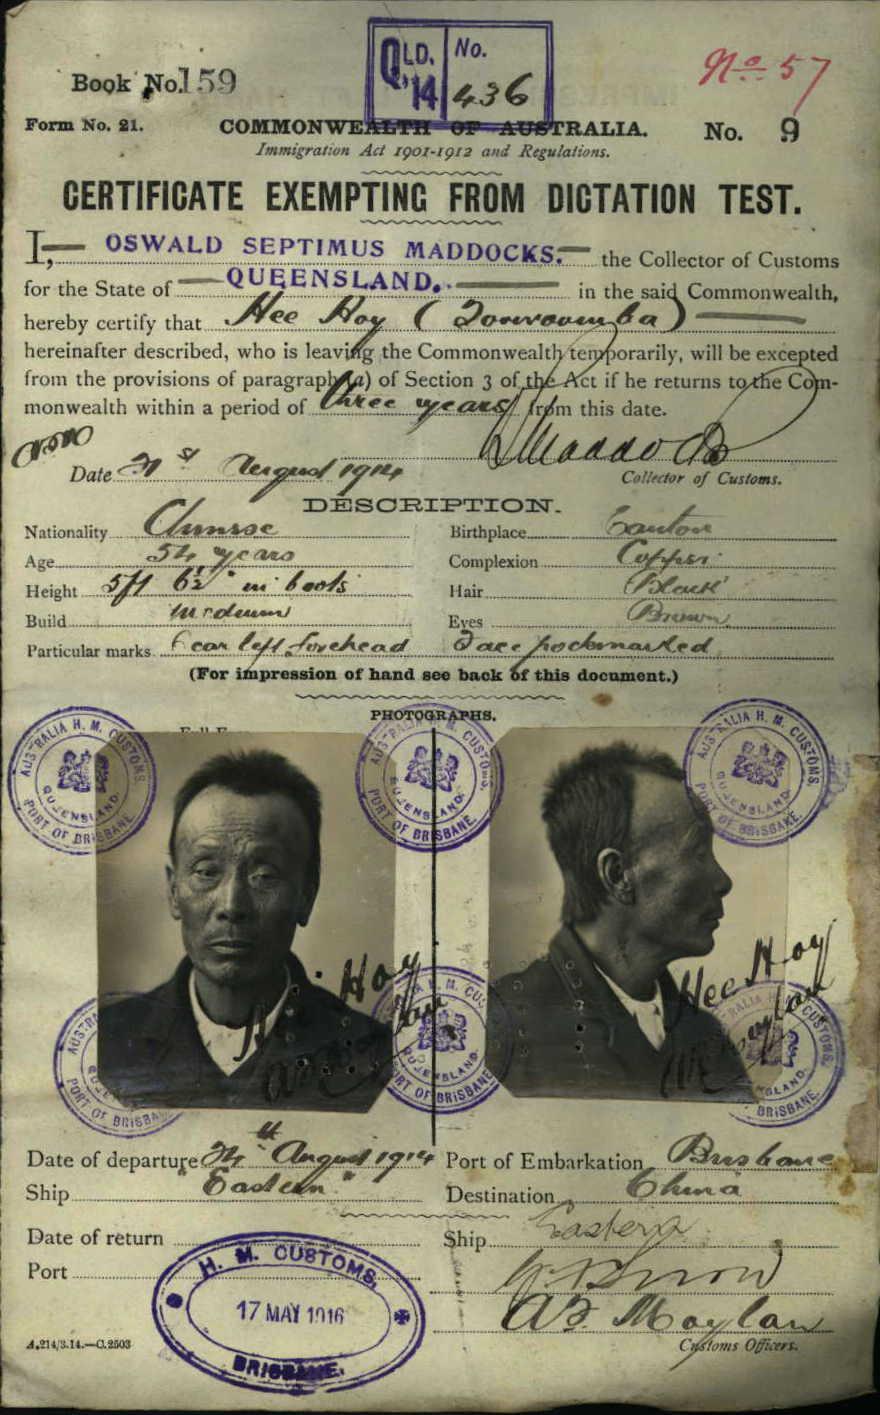 QLD. '14
No. 436
No. 57
Book No. 159
Form No. 21.
COMMONWEALTH OF AUSTRALIA.
No. 9
Immigration Act 1901-1912 and Regulations.
CERTIFICATE EXEMPTING FROM DICTATION TEST.
I, OSWALD SEPTIMUS MADDOCKS. the Collector of Customs
for the State of QUEENSLAND. in the said Commonwealth,
hereby certify that Hee Hoy (Toowoomba)
hereinafter described, who is leaving the Commonwealth temporarily, will be excepted
from the provisions of paragraph (a) of Section 3 of the Act if he returns to the Com-
monwealth within a period of three years from this date.
Date 21st August 1914
O S Maddocks
Collector of Customs.
DESCRIPTION.
Nationality Chinese
Birthplace Canton
Age 54 years
Complexion Copper
Height 5ft 6½" in boots
Hair Black
Build medium
Eyes Brown
Particular marks Scar left forehead Face pockmarked
(For impression of hand see back of this document.)
PHOTOGRAPHS.
AUSTRALIA H. M. CUSTOMS. PORT OF BRISBANE QUEENSLAND
AUSTRALIA H. M. CUSTOMS. PORT OF BRISBANE. QUEENSLAND.
AUSTRALIA H. M. CUSTOMS. PORT OF BRISBANE. QUEENSLAND.
Hee Hoy
Hee Hoy
AF Moylan
Date of departure 24th August 1914
Port of Embarkation Brisbane
Ship "Eastern"
Destination China
Date of return
Ship Eastern
Port
H. M. CUSTOMS,
17 MAY 1916
BRISBANE.
AF Moylan
A.214/3.14.—C.2503
Customs Officers.